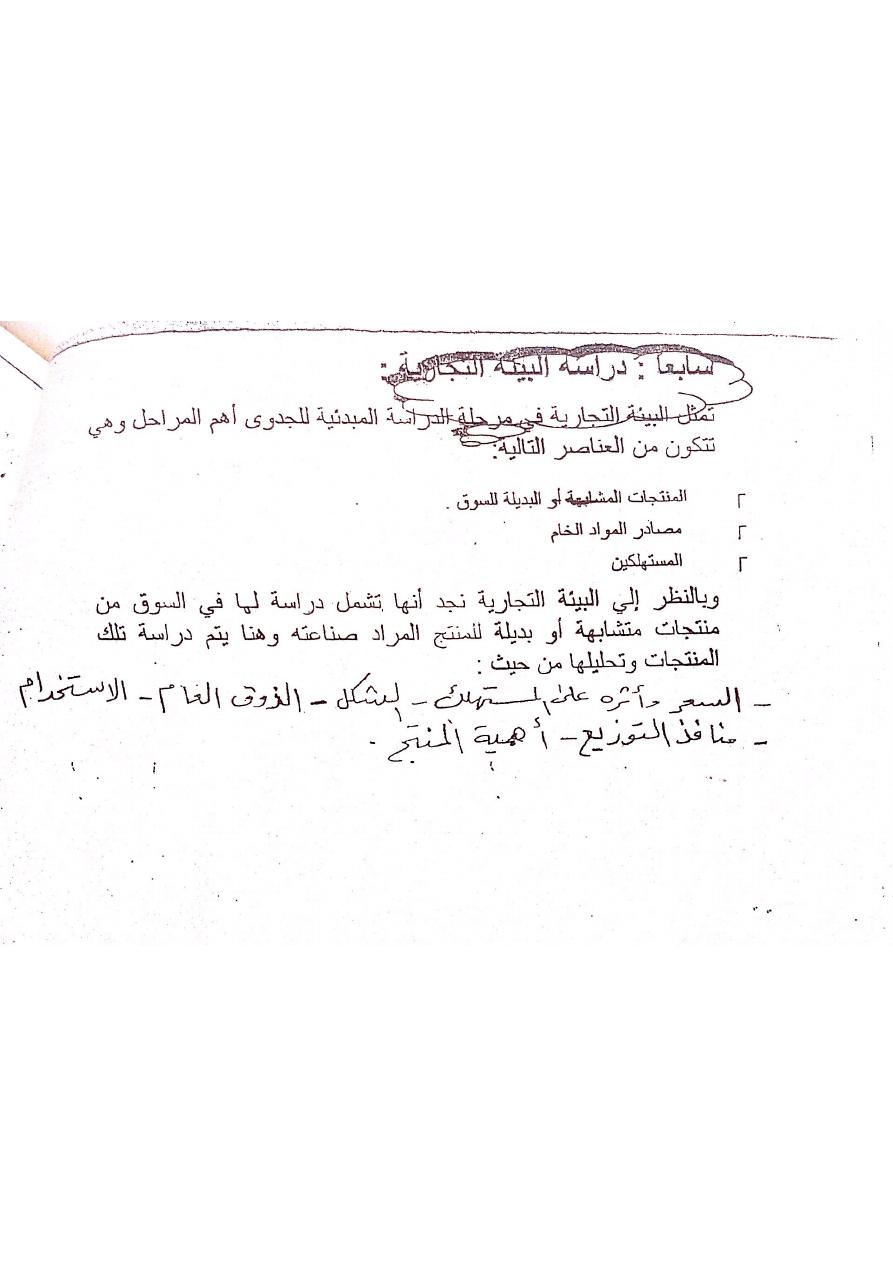 سابعا : دراسة البيئة التجارية :
تمثل البيئة التجارية في مرحلة الدراسة المبدئية للجدوى أهم المراحل وهي
تتكون من العناصر التالية:
٢ المنتجات المشابهة أو البديلة للسوق .
٢ مصادر المواد الخام
٢ المستهلكين
وبالنظر إلي البيئة التجارية نجد أنها تشمل دراسة لها في السوق من
منتجات متشابهة أو بديلة للمنتج المراد صناعته وهنا يتم دراسة تلك
المنتجات وتحليلها من حيث :
- السعر وأثره على المستهلك - الشكل - الذوق العام - الاستخدام
- منافذ التوزيع - أهمية المنتج .